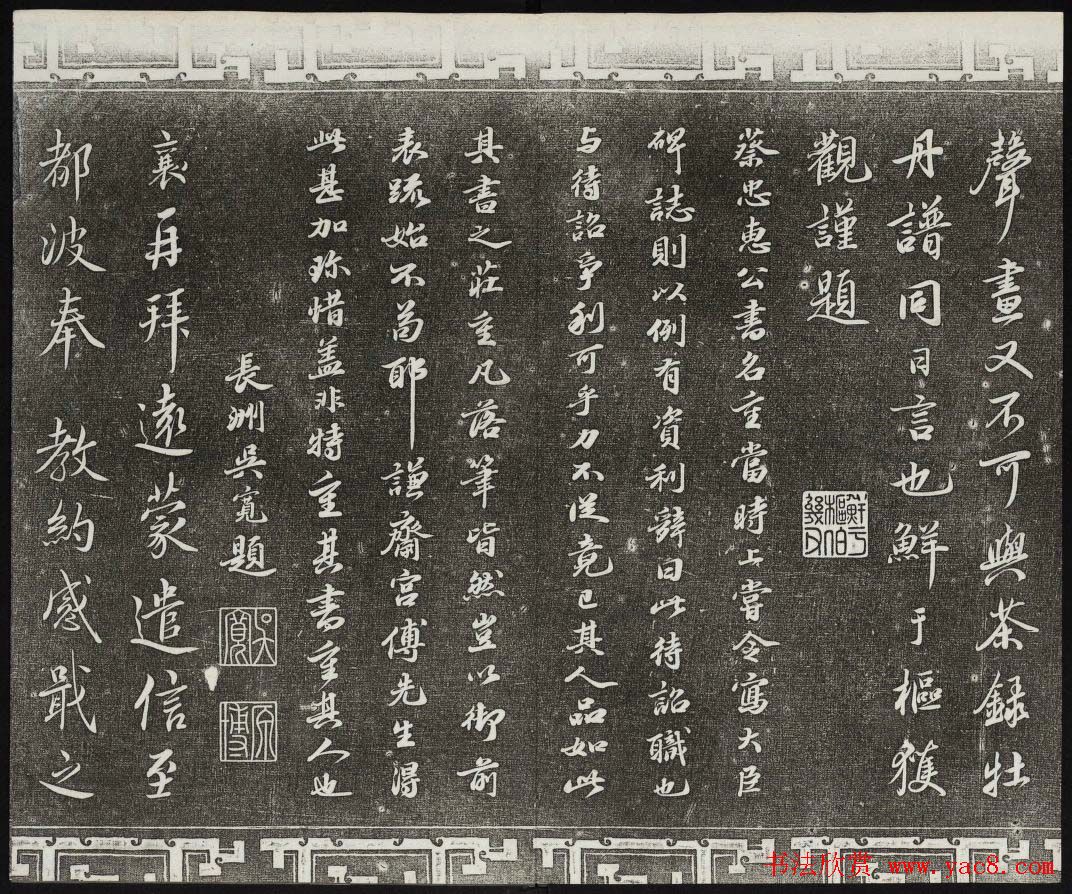 聲畫又不可與茶錄牡
丹譜同日言也鮮于樞獲
觀謹題
鮮于樞伯幾父
蔡忠惠公書名重當時上嘗令寫大臣
碑誌則以例有資利辭曰此待詔職也
与待詔爭利可乎力不從竟已其人品如此
其書之莊重凡落筆皆然豈以御前
表疏始不苟耶謙齋宮傅先生得
此甚加珍惜蓋非特重其書重其人也
長洲吳寬題
吳寬
原博
襄再拜遠蒙遣信至
都波奉 教約感戢之
书法欣赏 www.yac8.com